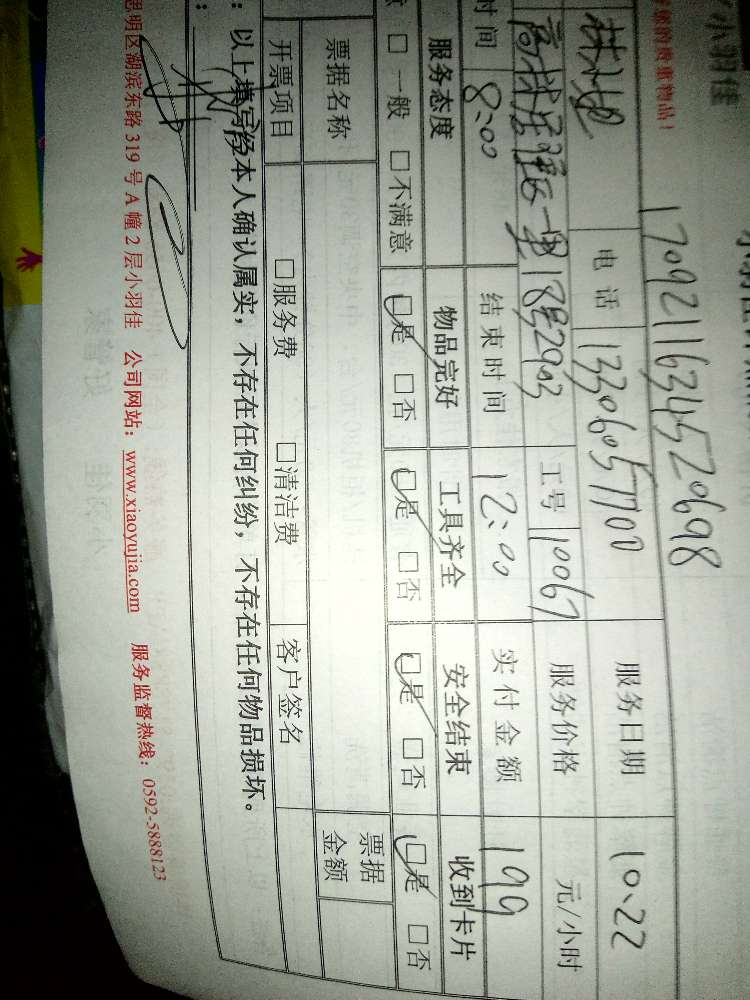 小羽佳
贵重物品！
17092116345 20698
电话 13306057700 服务日期 10.22
里18号2903 工号 10067 服务价格 元/小时
时间 8:00 结束时间 12:00 实付金额 199
服务态度 物品完好 工具齐全 安全结束 收到卡片
□一般 □不满意 □是 □否 □是 □否 □是 □否 □是 □否
票据名称 票据金额
开票项目 □服务费 □清洁费 客户签名
：以上填写经本人确认属实，不存在任何纠纷，不存在任何物品损坏。
思明区湖滨东路 319 号 A 幢 2 层小羽佳 公司网站：www.xiaoyujia.com 服务监督热线：0592-5888123